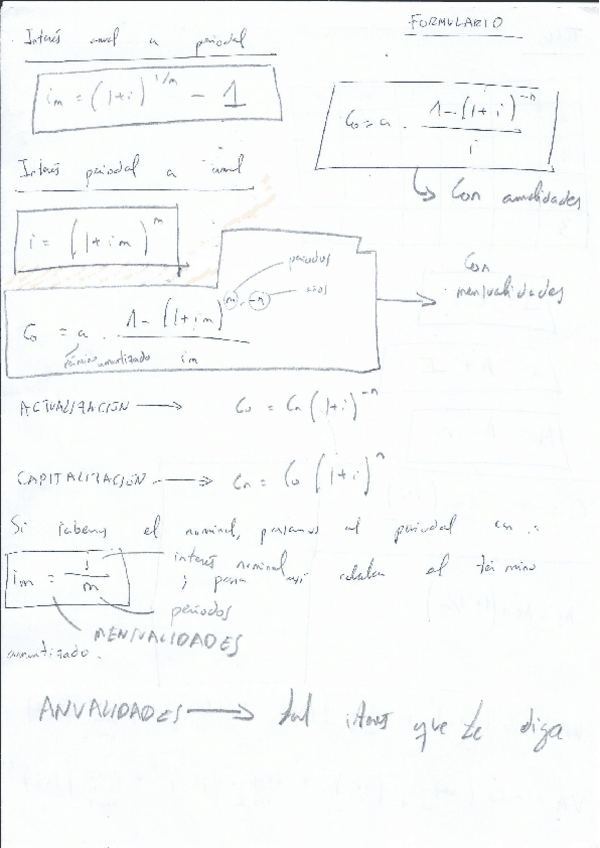 FORMULARIO
Interés anual a periodal
im = (1+i)^1/m - 1
Co = a . 1-(1+i)^-n / i
Con anualidades
Interés periodal a anual
i = (1+im)^m
Con mensualidades
periodos
años
Co = a . 1-(1+im)^m.-n / im
término amortizado
ACTUALIZACIÓN → Co = Cn (1+i)^-n
CAPITALIZACIÓN → Cn = Co (1+i)^n
Si sabemos el nominal, pasamos al periodal con :
im = i / m
interés nominal
; para así calcular el término
periodos
MENSUALIDADES
amortizado.
ANUALIDADES → tal interés que te diga